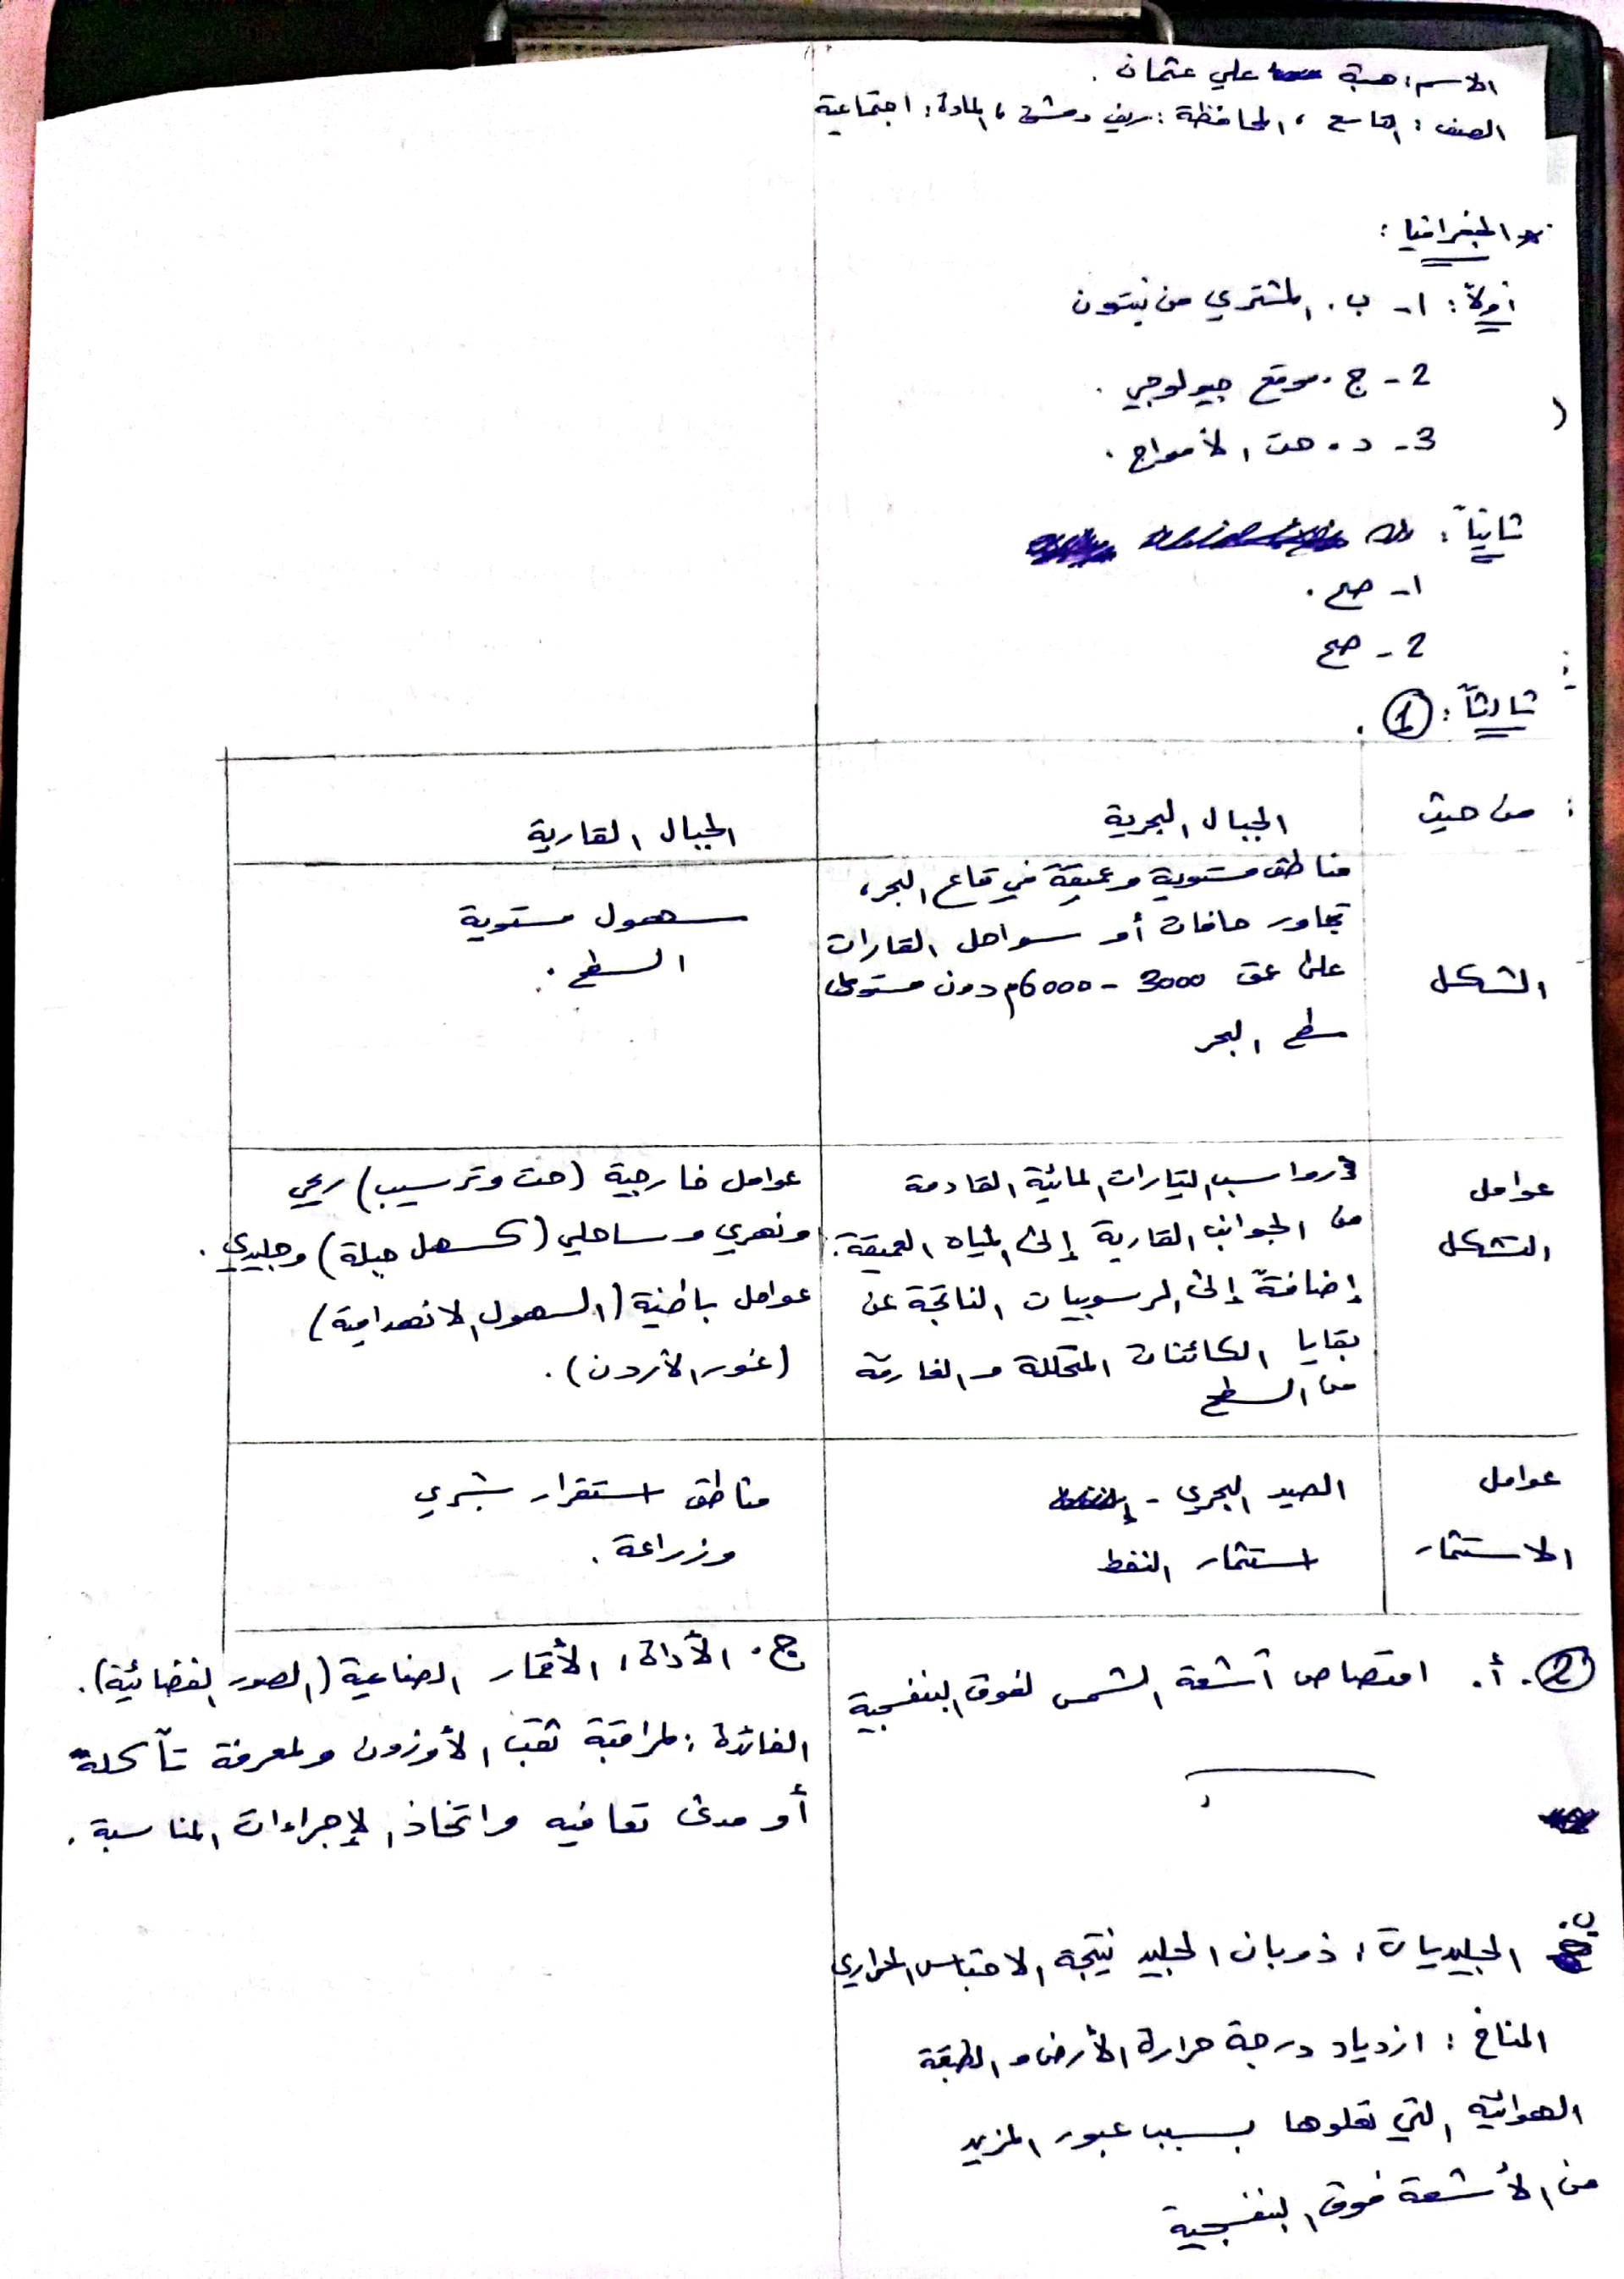 الاسم: هبة علي عثمان.
الصف: التاسع، المحافظة: ريف دمشق، المادة: اجتماعية
* الجغرافيا:
أولاً: 1- ب. المشتري من نبتون
2- ج. موقع جيولوجي.
3- د. حت الأمواج.
ثانياً:
1- صح.
2- صح
ثالثاً: 1.
من حيث
الجبال البحرية
الجبال القارية
الشكل
مناطق مستوية وعميقة في قاع البحر،
تجاور حافات أو سواحل القارات
على عمق 3000 - 6000م دون مستوى
سطح البحر
سهول مستوية
السطح.
عوامل
التشكل
رواسب التيارات المائية القادمة
من الجوانب القارية إلى المياه العميقة.
إضافةً إلى الرسوبيات الناتجة عن
بقايا الكائنات المتحللة والغارقة
من السطح
عوامل خارجية (حت وترسيب) ريحي
ونهري وساحلي (كسهل جبلة) وجليدي.
عوامل باطنية (السهول الانهدامية)
(غور الأردن).
عوامل
الاستثمار
الصيد البحري -
استثمار النفط
مناطق استقرار بشري
وزراعة.
2. أ. امتصاص أشعة الشمس الفوق البنفسجية
ب. الجليديات: ذوبان الجليد نتيجة الاحتباس الحراري
المناخ: ازدياد درجة حرارة الأرض والطبقة
الهوائية التي تعلوها بسبب عبور المزيد
من الأشعة فوق البنفسجية
ج. الأداة: الأقمار الصناعية (الصور الفضائية).
الفائدة: لمراقبة ثقب الأوزون ولمعرفة تآكله
أو مدى تعافيه واتخاذ الإجراءات المناسبة.